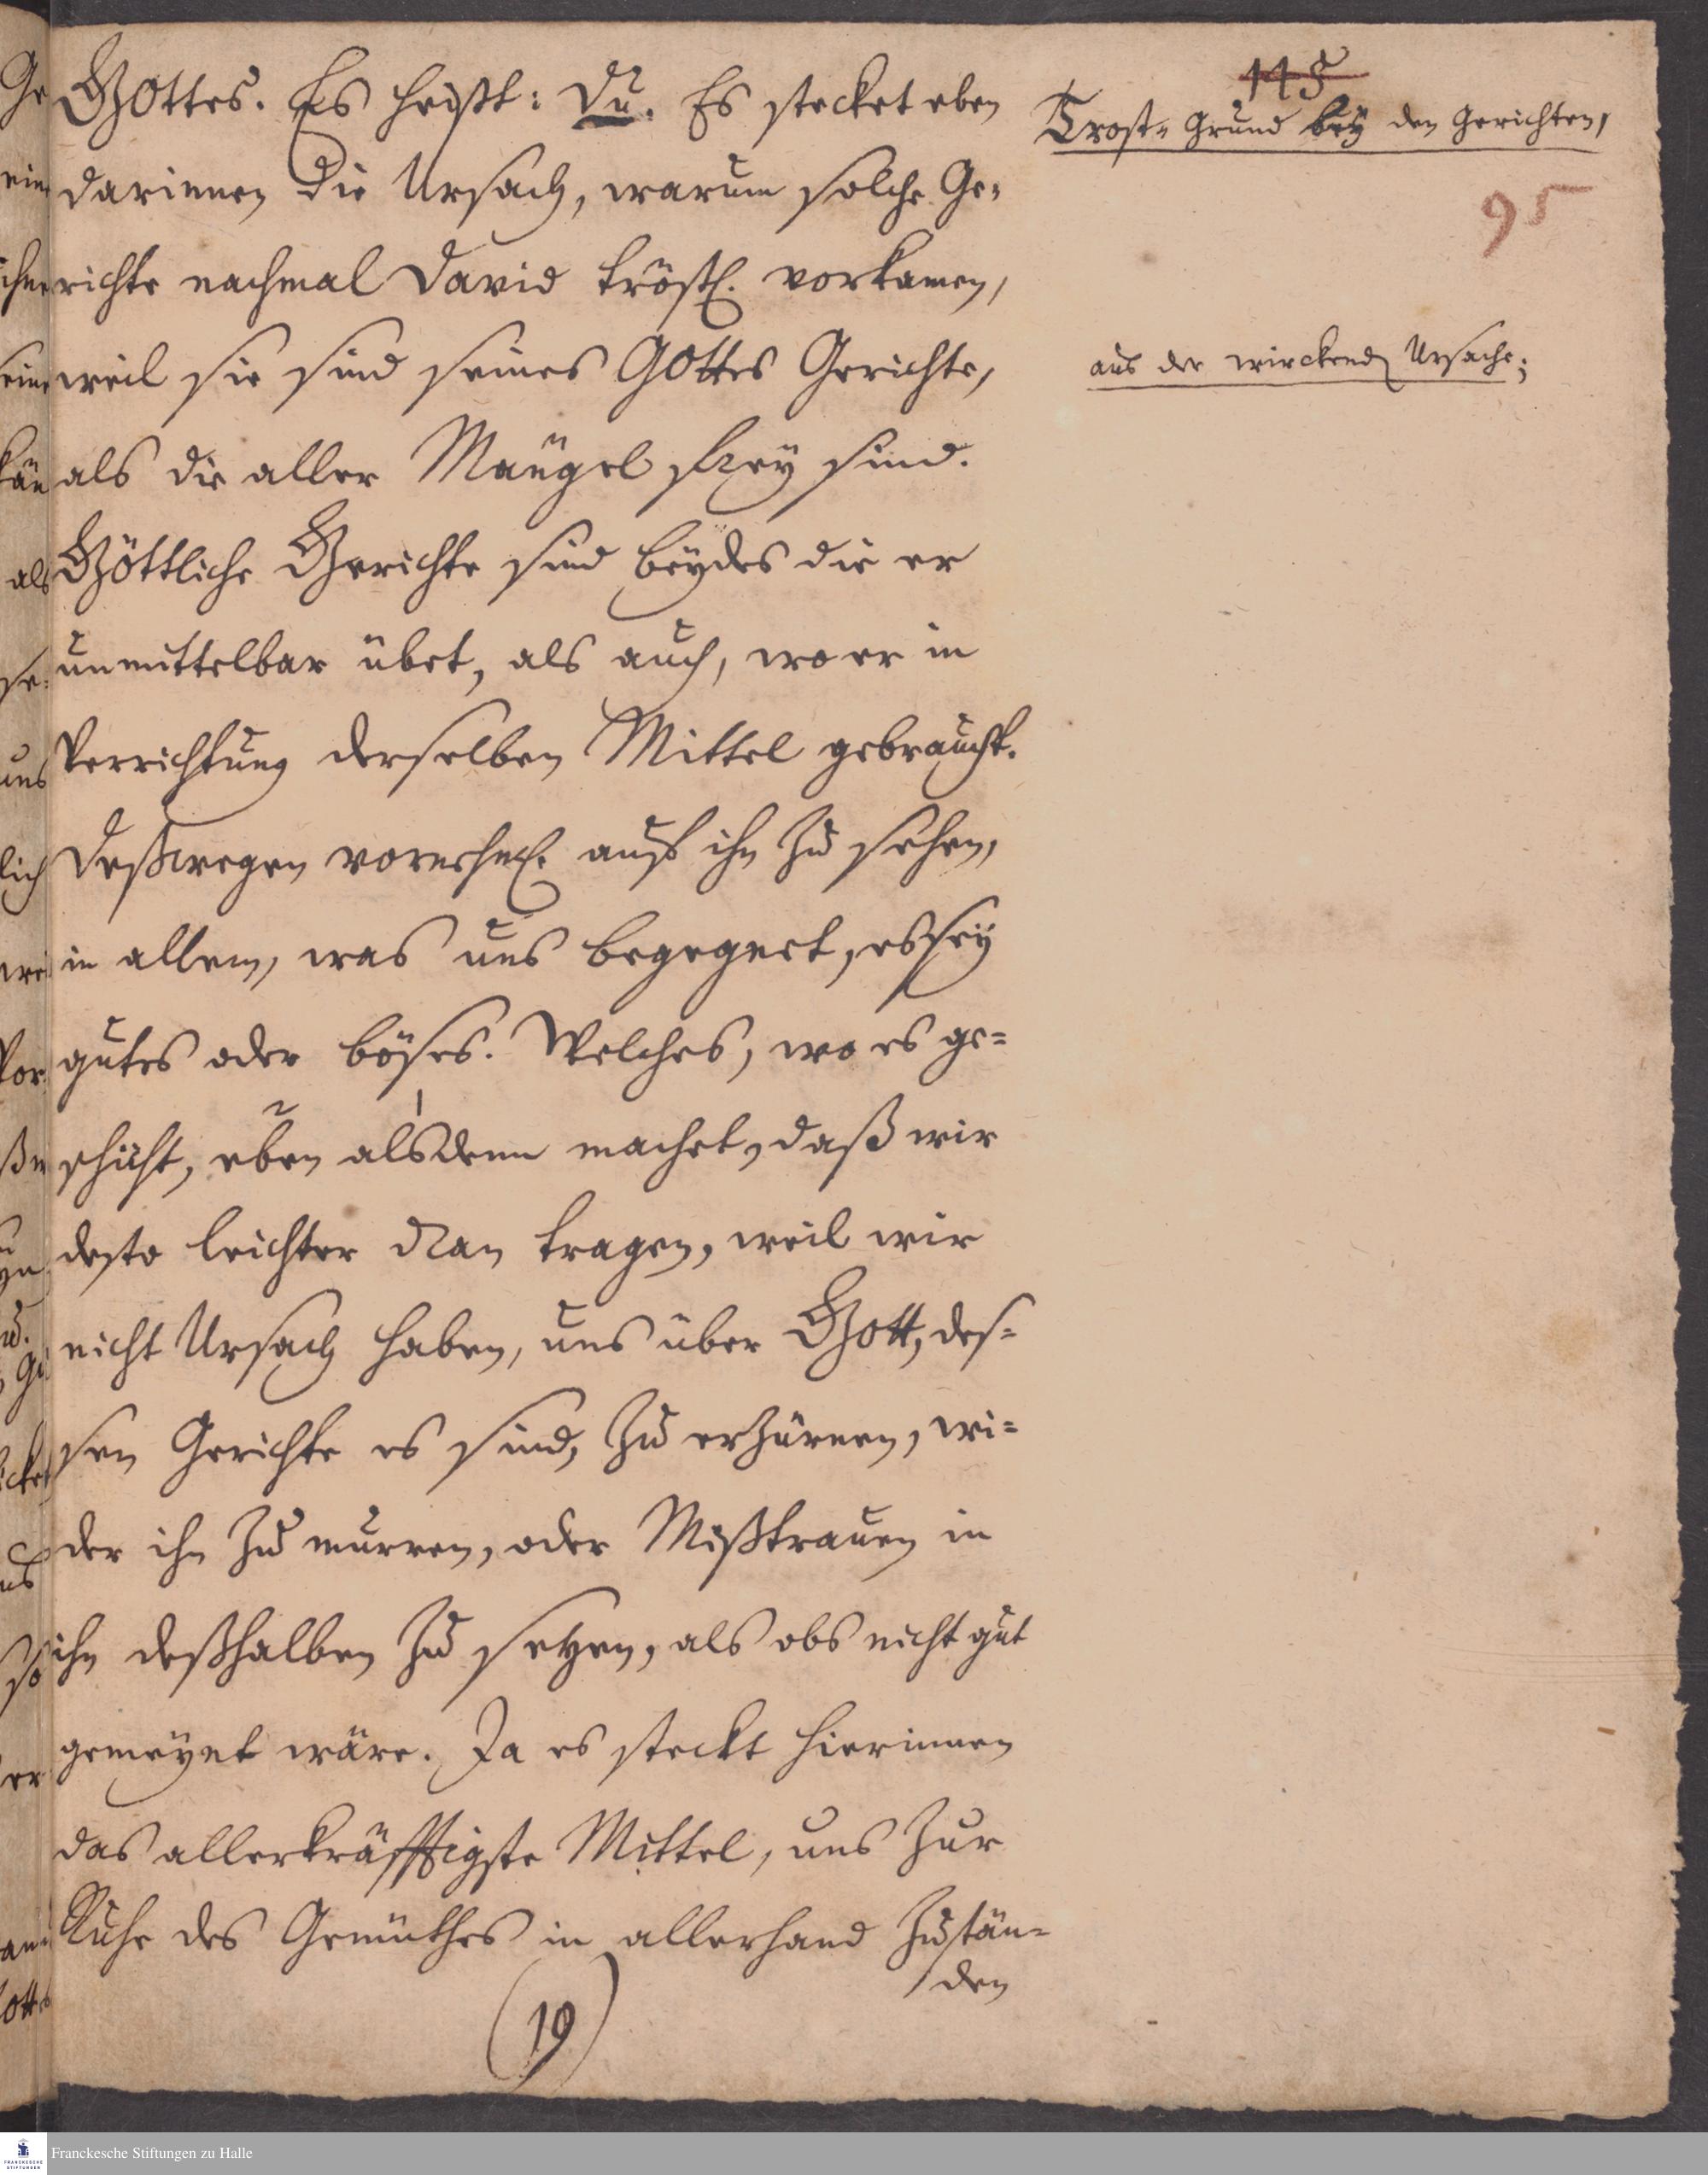 GOttes. Es heißt: Du. Es stecket eben
darinnen die Ursach, warum solche Ge-
richte nachmal David tröstl. vorkamen,
weil sie sind seines GOttes Gerichte,
als die aller Mängel frey sind.
Göttliche Gerichte sind beydes die er
unmittelbar übet, als auch, wo er in
Verrichtung derselben Mittel gebraucht.
Deßwegen vornehml. auf ihn zu sehen,
in allem, was uns begegnet, es sey
gutes oder böses. Welches, wo es ge-
schicht, eben alsdenn machet, daß wir
desto leichter dran tragen, weil wir
nicht Ursach haben, uns über Gott, des-
sen Gerichte es sind, zu erzürnen, wi-
der ihn zu murren, oder Mißtrauen in
ihn deßhalben zu setzen, als obs nicht gut
gemeynt wäre. Ja es steckt hierinnen
das allerkräfftigste Mittel, uns zur
Ruhe des Gemüthes in allerhand Zustän-
den
(19)
115
Trost-Grund bey den Gerichten,
95
aus der wirckend Ursache;
Franckesche Stiftungen zu Halle